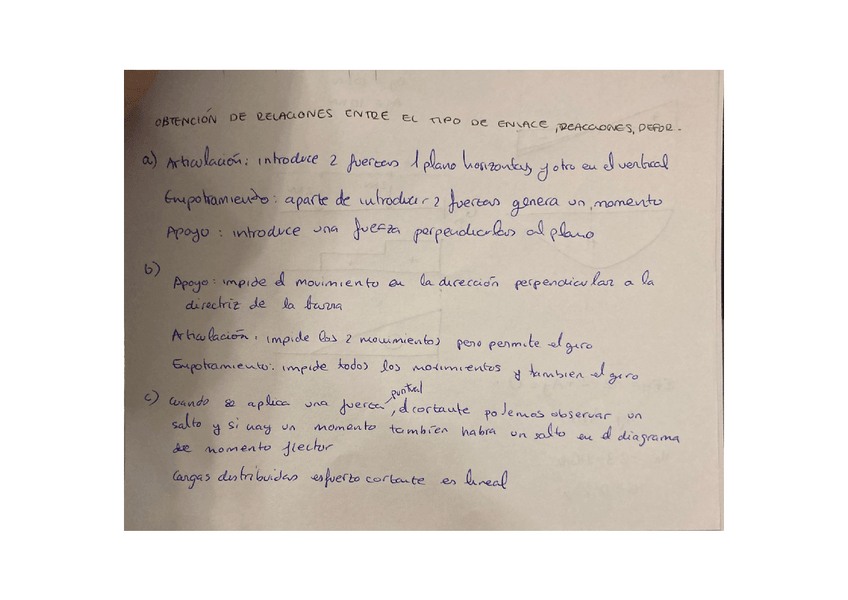 OBTENCIÓN DE RELACIONES ENTRE EL TIPO DE ENLACE, REACCIONES, DEFOR.
a) Articulación: introduce 2 fuerzas 1 plano horizontas y otro en el vertical
Empotramiento: aparte de introducir 2 fuerzas genera un momento
Apoyo: introduce una fuerza perpendicular al plano
b)
Apoyo: impide el movimiento en la dirección perpendicular a la
directriz de la barra
Articulación: impide los 2 movimientos pero permite el giro
Empotramiento: impide todos los movimientos y tambien el giro
puntual
c) cuando se aplica una fuerza, el cortante podemos observar un
salto y si hay un momento tambien habra un salto en el diagrama
de momento flector
Cargas distribuidas esfuerzo cortante es lineal